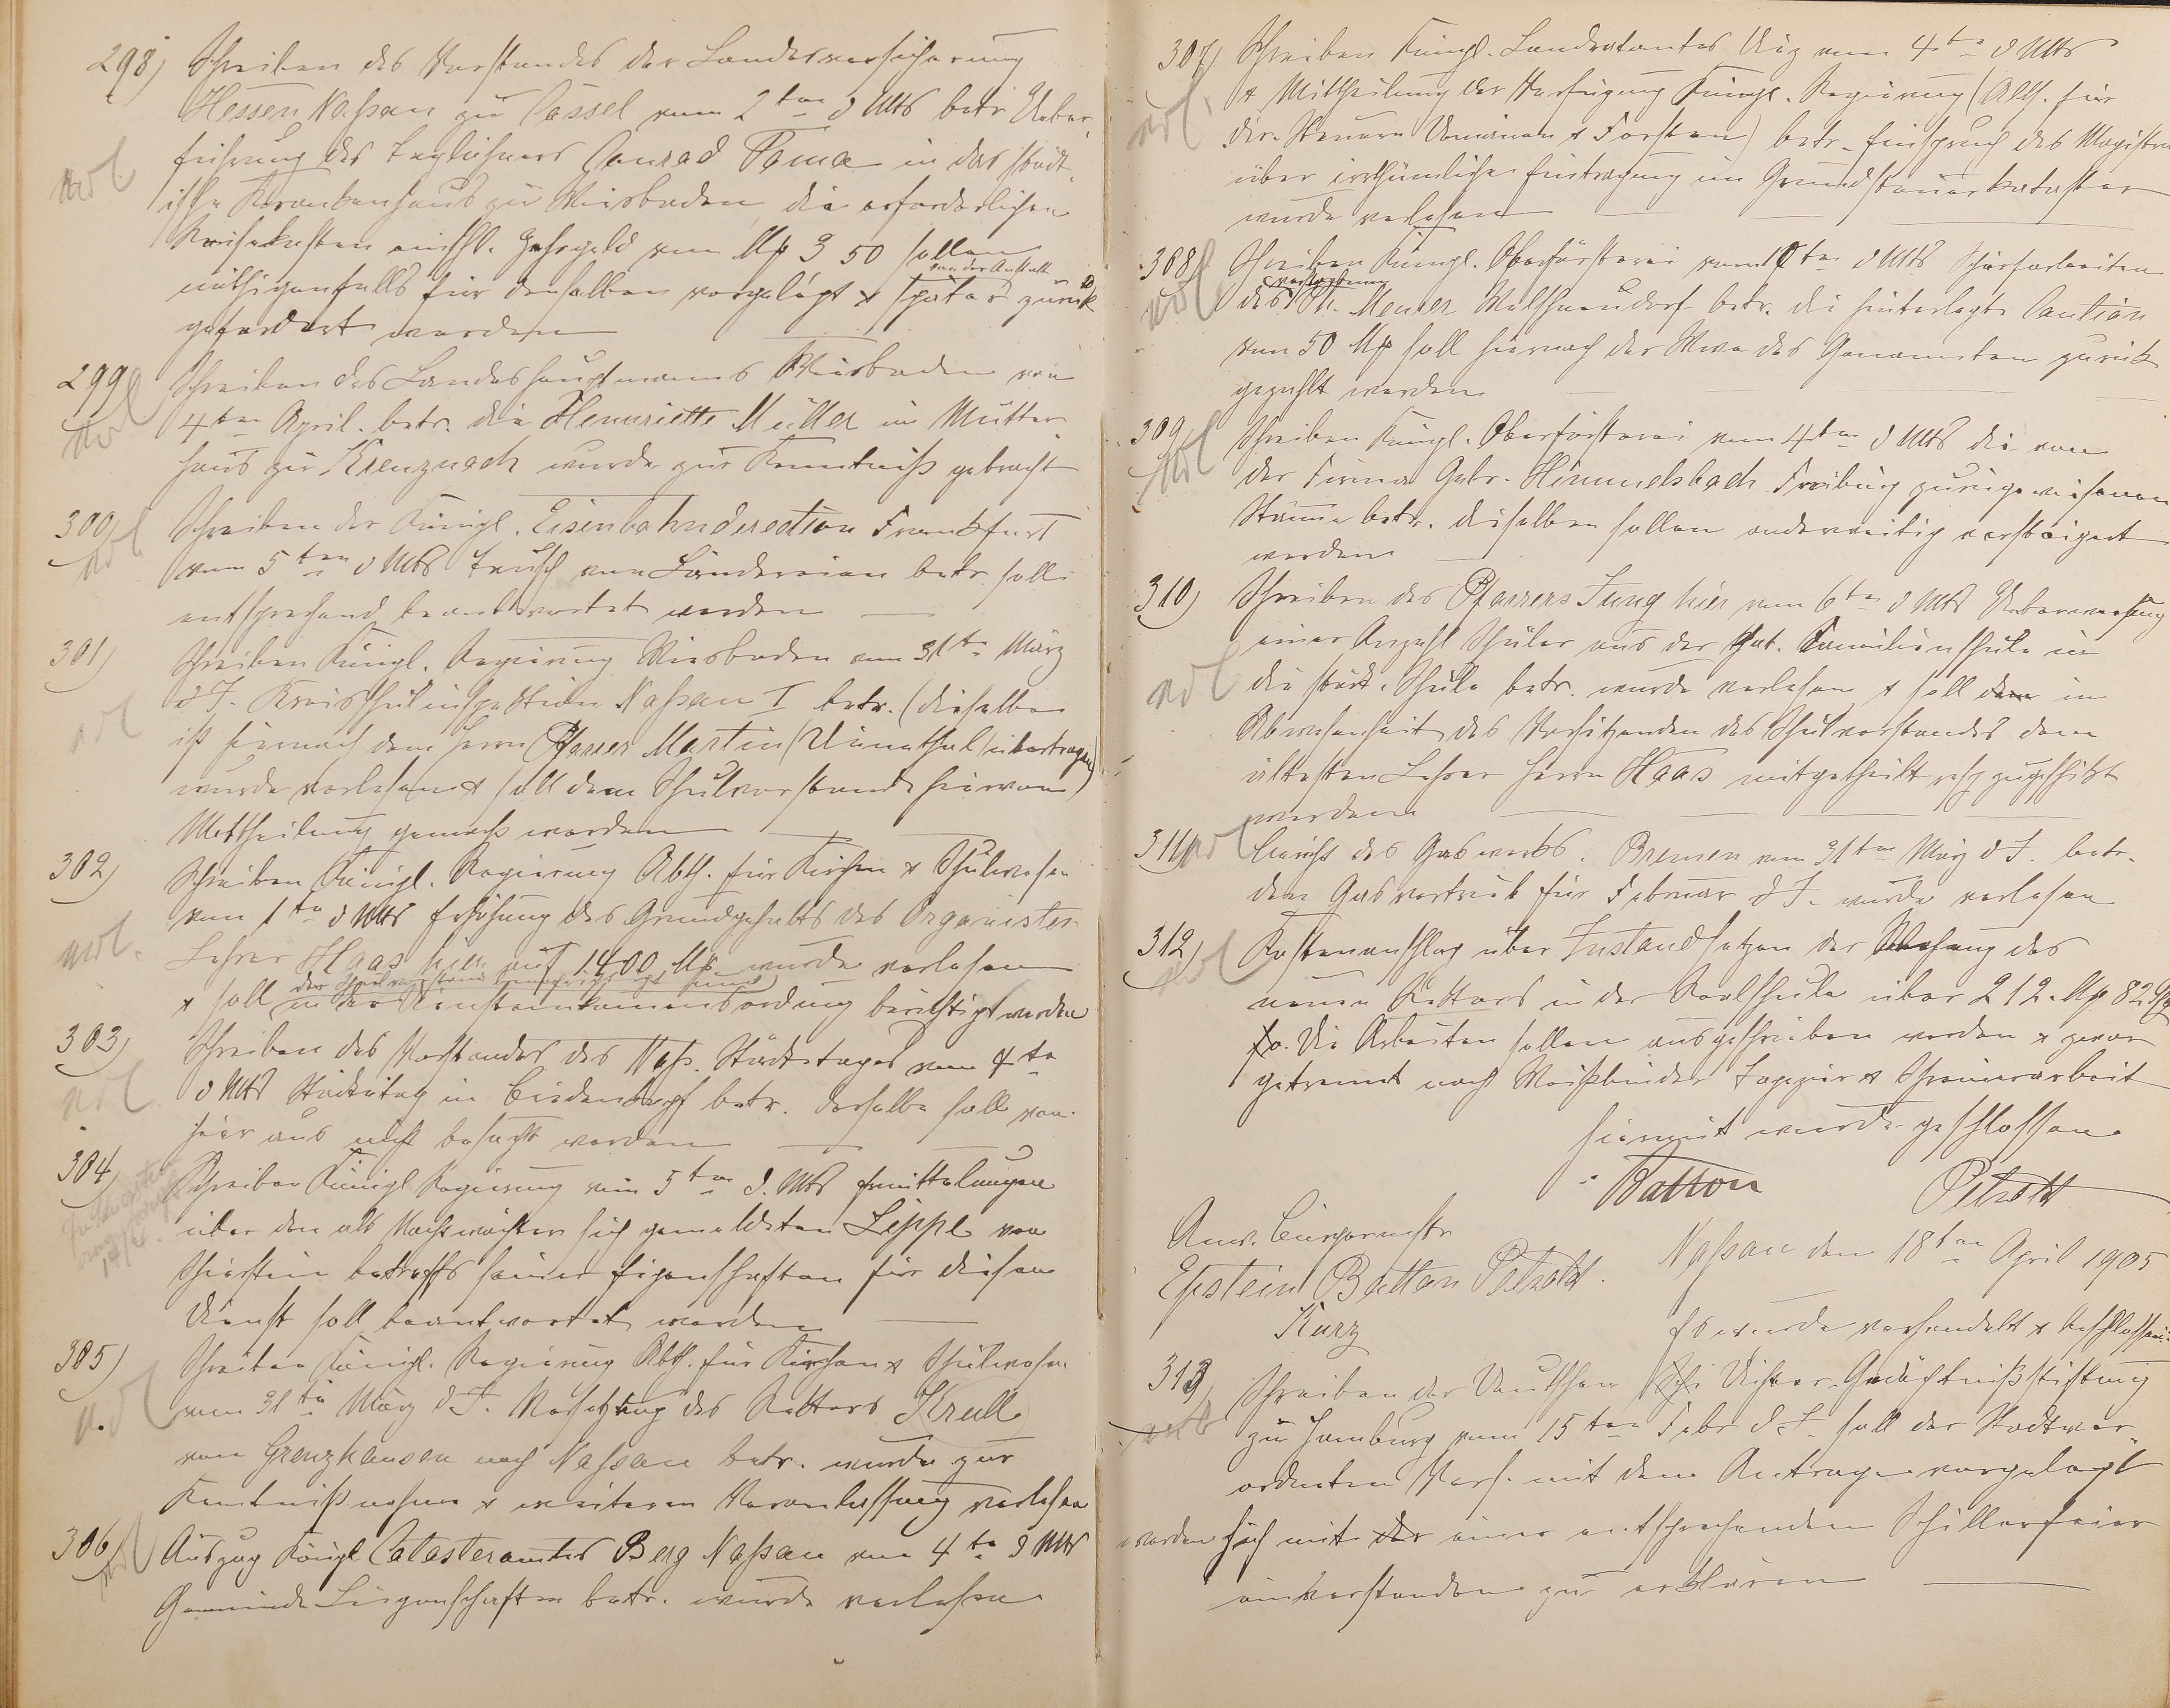 298) Schreiben des Vorstandes der Landesversicherung
Hessen Naßau zu Cassel vom 2ten d Mts betr Ueber-
führung des Taglöhners Conrad Toma in das städt-
ische Krankenhaus zu Wiesbaden, die erforderlichen
Reisekosten einschl. Zehrgeld von Mk 3 50 sollen
nöthigenfalls für denselben vorgelegt & später von der Anstalt zurück
gefordert werden
299) Schreiben des Landeshauptmanns Wiesbaden vom
4ten April. betr. die Henriette Müller im Mutter
haus zu Kreuznach wurde zur Kenntniß gebracht
300) Schreiben der Königl. Eisenbahnderection Frankfurt
vom 5ten d Mts Tausch von Ländereien betr. soll
entsprechend beantwortet werden
301) Schreiben Königl. Regierung Wiesbaden vom 31te März
d J. Kreisschulinspektion Naßau I betr. (dieselbe
ist hiernach dem Herrn Pfarrer Martin (Dienethal) übertragen)
wurde verlesen & soll dem Schulvorstande hiervon
Mittheilung gemacht werden
302) Schreiben Königl. Regierung Abth. für Kirchen & Schulwesen
vom 1te d Mts Erhöhung des Grundgehalts des Organisten-
Lehrer Haas hier auf 1400 Mk. wurde verlesen
& soll der Schulvorstand benachrichtigt und
in der Diensteinkommensordnung berichtigt werden
303) Schreiben des Vorstandes des Nass. Städtetages vom 4te
d Mts Städtetag in Biedenkopf betr. derselbe soll von
hier aus nicht besucht werden
304) Schreiben Königl Regierung vom 5ten d. Mts Ermittelungen
über den als Nachtwächter sich gemeldeten Leppel von
Schierstein betreffs seiner Eigenschaften für diesen
Dienst soll beantwortet werden
305) Schreiben Königl. Regierung Abth. für Kirchen & Schulwesen
vom 31te März d J. Versetzung des Rektors Krull
von Grenzhausen nach Naßau betr. wurde zur
Kenntnißnahme & weiteren Veranlassung verlesen
306) Auszug Königl. Catasteramtes Berg Naßau vom 4te d Mts
Gemeinde Liegenschaften betr. wurde verlesen
307) Schreiben Königl. Landratamtes Diez vom 4te d Mts
& Mittheilung der Verfügung Königl. Regierung (Abth. für
dir. Steuern Domänen & Forsten) betr. Einspruch des Magistrats
über irrthümliche Eintragung im Grundsteuerkataster
wurde verlesen
308) Schreiben Königl. Oberförsterei vom 1te d Mts Schürfarbeiten
des verstorbenen Meuser Welschneudorf betr. die hinterlegte Caution
von 50 Mk soll hiernach der Wwe des Genannten zurück
gezahlt werden
309) Schreiben Königl. Oberförsterei vom 4ten d Mts die von
der Firma Gebr. Himmelsbach Freiburg zurückgewiesenen
Stämme betr. dieselben sollen anderweitig versteigert
werden
310) Schreiben des Pfarrers Jung hier vom 6te d Mts Ueberweisung
einer Anzahl Schüler aus der Familienschule in
die städt. Schule betr. wurde verlesen & soll dem in
Abwesenheit des Vorsitzenden des Schulvorstandes dem
ältesten Lehrer Herrn Haas mitgetheilt resp zugeschickt
werden
311) Bericht des Gaswerks. Bremen vom 31ten März d J. betr.
den Gasvertrieb für Februar d J. wurde verlesen
312) Kostenanschlag über Instandsetzen der Wohnung des
neuen Rektors in der Realschule über 212. Mk 82 Pfg
Die Arbeiten sollen ausgeschrieben werden & zwar
getrennt nach Weißbinder Tapezier & Schreinerarbeit
hiermit wurde geschlossen
Batton Petzold
Anw. Bürgermstr
Epstein Batton Petzold.
Kurz
Naßau den 18ten April 1905
Es wurde verhandelt & beschlossen:
313) Schreiben der Deutschen Dichter-Gedächtnißstiftung
zu Hamburg vom 15ten Febr d J. soll der Stadtver-
ordneten Vers. mit dem Antrage vorgelegt
werden sich mit der einer entsprechenden Schillerfeier
einverstanden zu erklären